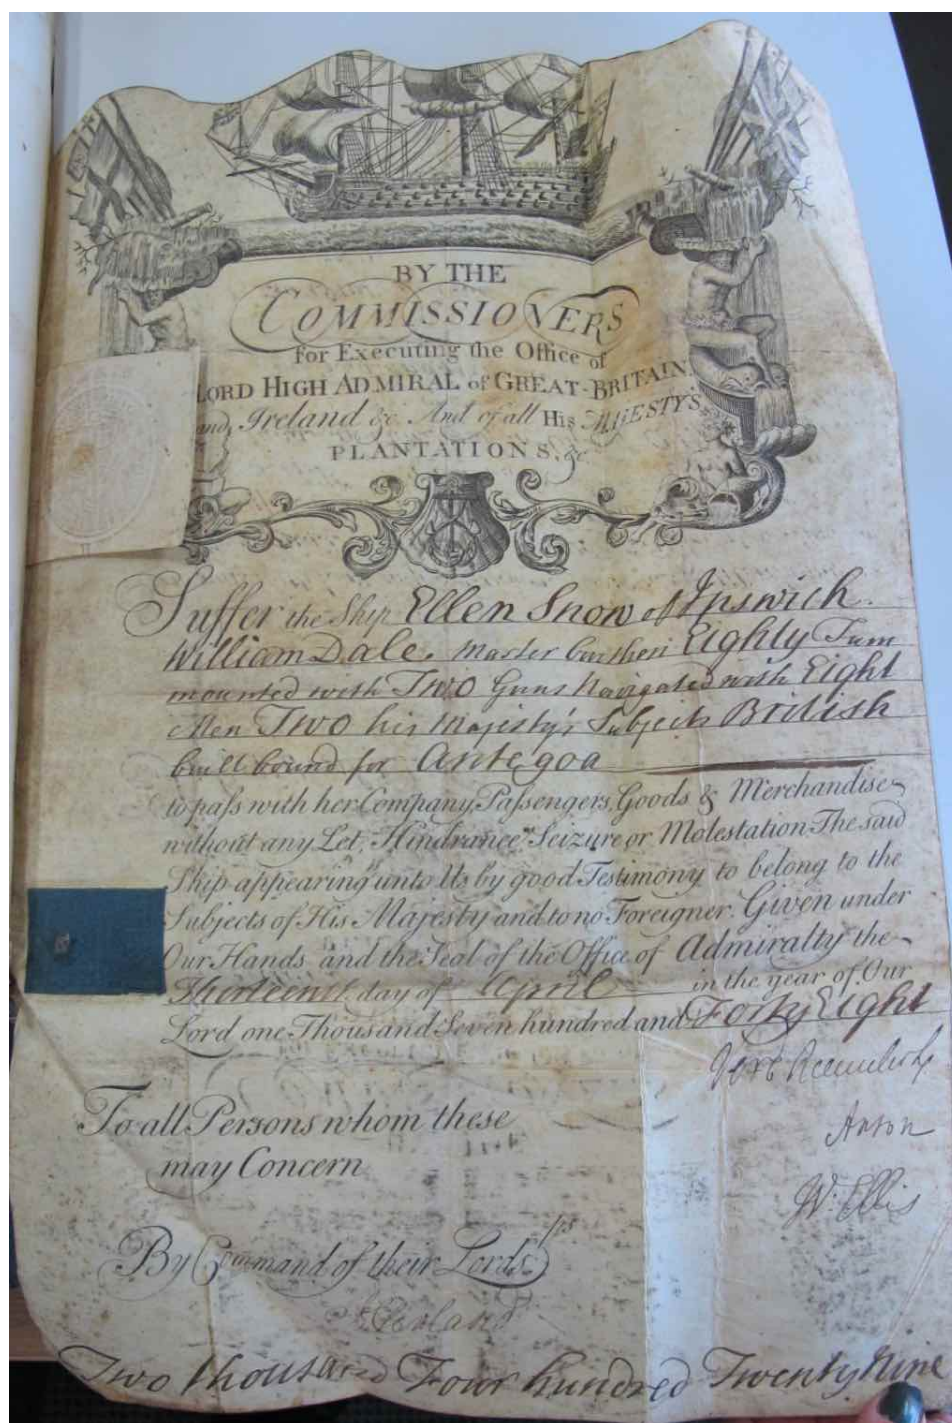 BY THE
COMMISSIONERS
For Executing the Office of
LORD HIGH ADMIRAL of GREAT-BRITAIN
and Ireland &c. And of all His MAJESTY'S
PLANTATIONS, &c
Suffer the Ship Ellen Snow of Ipswich.
William Dale, Master burthen Eighty Tunn
mounted with Two Guns Navigated with Eight
Men Two his Majesty's Subjects British
built bound for Antegoa
to pass with her Company, Passengers, Goods & Merchandise
without any Let, Hindrance, Seizure or Molestation The said
Ship appearing unto Us by good Testimony to belong to the
Subjects of His Majesty and to no Foreigner. Given under
Our Hands and the Seal of the Office of Admiralty the
Thirteenth day of April in the year of Our
Lord one Thousand Seven hundred and Forty Eight
To all Persons whom these
may Concern
Anson
W: Ellis
By Command of their Lordps
Two thousand Four hundred Twenty Nine